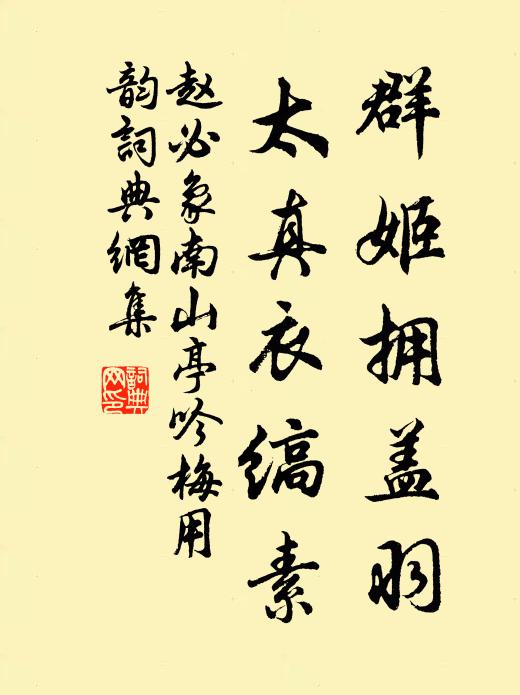 群姬拥盖羽
太真衣缟素
赵必象南山亭吟梅用
韵詞典網集
詞典
网印